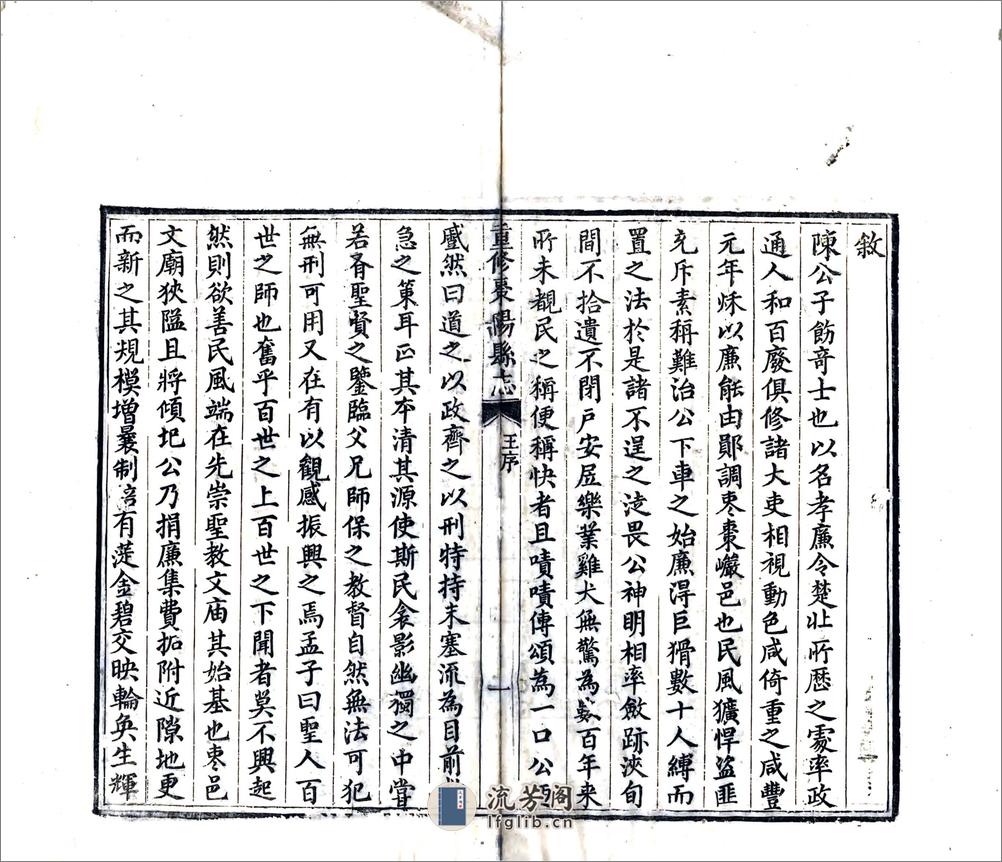 敘
陳公子飭竒士也以名孝廉令楚北所歷之處率政
通人和百廢俱修諸大吏相視動色咸倚重之咸豐
元年秌以廉能由鄖調枣棗巖邑也民風獷悍盜匪
充斥素稱難治公下車之始廉得巨猾數十人縛而
置之法於是諸不逞之徒畏公神明相率斂跡浹旬
間不拾遺不閉戸安居樂業雞犬無驚為數百年来
所未覩民之稱便稱快者且嘖嘖傳頌為一口公
重修棗陽縣志
王序
一
蹙然曰道之以政齊之以刑特持末塞流為目前
急之策耳正其本清其源使斯民衾影幽獨之中嘗
若有聖賢之鑒臨父兄師保之教督自然無法可犯
無刑可用又在有以觀感振興之焉孟子曰聖人百
世之師也奮乎百世之上百世之下聞者莫不興起
然則欲善民風端在先崇聖教文庙其始基也枣邑
文廟狹隘且將傾圯公乃捐廉集費拓附近隙地更
而新之其規模增曩制有金碧交映輪奐生輝
流芳阁
lfglib.cn